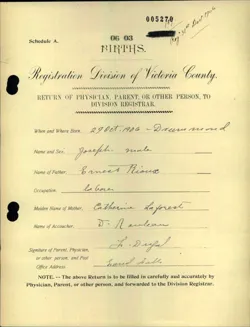 005270
Schedule A.
06 03
BIRTHS.
Registration Division of Victoria County.
RETURN OF PHYSICIAN, PARENT, OR OTHER PERSON, TO
DIVISION REGISTRAR.
When and Where Born 29 Oct 1906 - Drummond
Name and Sex, Joseph male
Name of Father, Ernest Rioux
Occupation, Laborer
Maiden Name of Mother, Catherine Laforest
Name of Accoucher, D.
Signature of Parent, Physician,
or other person, and Post
Office Address
NOTE.—The above Return is to be filled in carefully and accurately by
Physician, Parent, or other person, and forwarded to the Division Registrar.